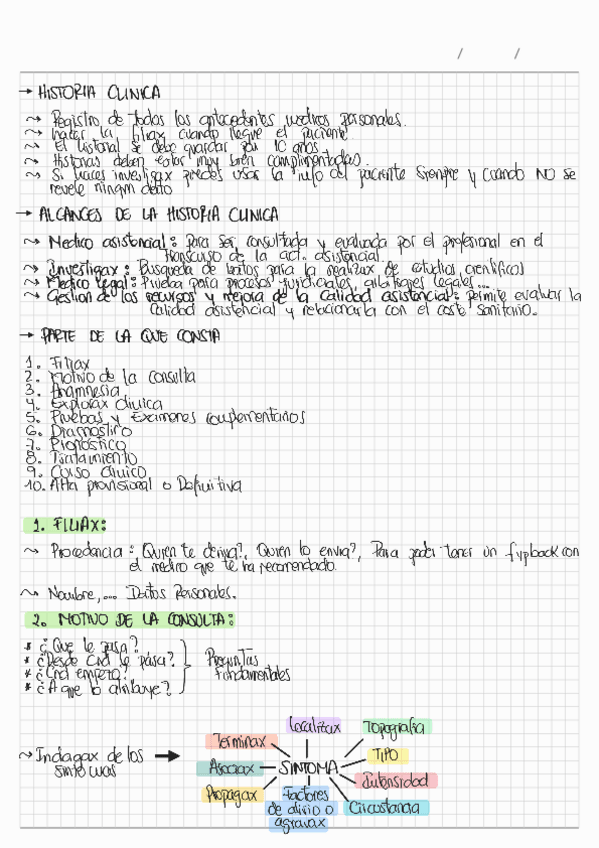 / /
→ HISTORIA CLINICA
~> Registro de todos los antecedentes medicos personales.
~> hacer la filiax cuando llegue el paciente.
~> El historial se debe guardar por 10 años.
~> Historias deben estar muy bien complimentadas.
~> Si haces investigax puedes usar la info del paciente siempre y cuando NO se
revele ningun dato
→ ALCANCES DE LA HISTORIA CLINICA
~> Medico asistencial: Para ser consultada y evaluada por el profesional en el
transcurso de la act. asistencial
~> Investigax: Busqueda de datos para la realizax de estudios cientificos
~> Medico legal: Prueba para procesos juridiciales, arbitrages legales...
~> Gestion de los recursos y mejora de la calidad asistencial: permite evaluar la
calidad asistencial y relacionarla con el coste sanitario.
→ PARTE DE LA QUE CONSTA
1. Filiax
2. Motivo de la consulta
3. Anamnesia
4. Explorax clinica
5. Pruebas y Examenes complementarios
6. Diagnostico
7. Pronóstico
8. Tratamiento
9. Curso clinico
10. Alta provisional o Definitiva
1. FILIAX:
~> Procedancia: Quien te deriva?, Quien lo envia?, Para poder tener un fypback con
el medico que te ha recomendado.
~> Nombre,... Datos Personales.
2. MOTIVO DE LA CONSULTA:
* ¿Que le pasa?
* ¿Desde Cnd le pasa?
* ¿Cnd empezo?
* ¿A que lo atribuye?
Preguntas
fundamentales
~> Indagax de los
sintomas
→
SINTOMA
Localizax
Topografia
TIPO
Intensidad
Circustancia
Factores
de alivio o
agravax
Propagax
Asociax
Terminax